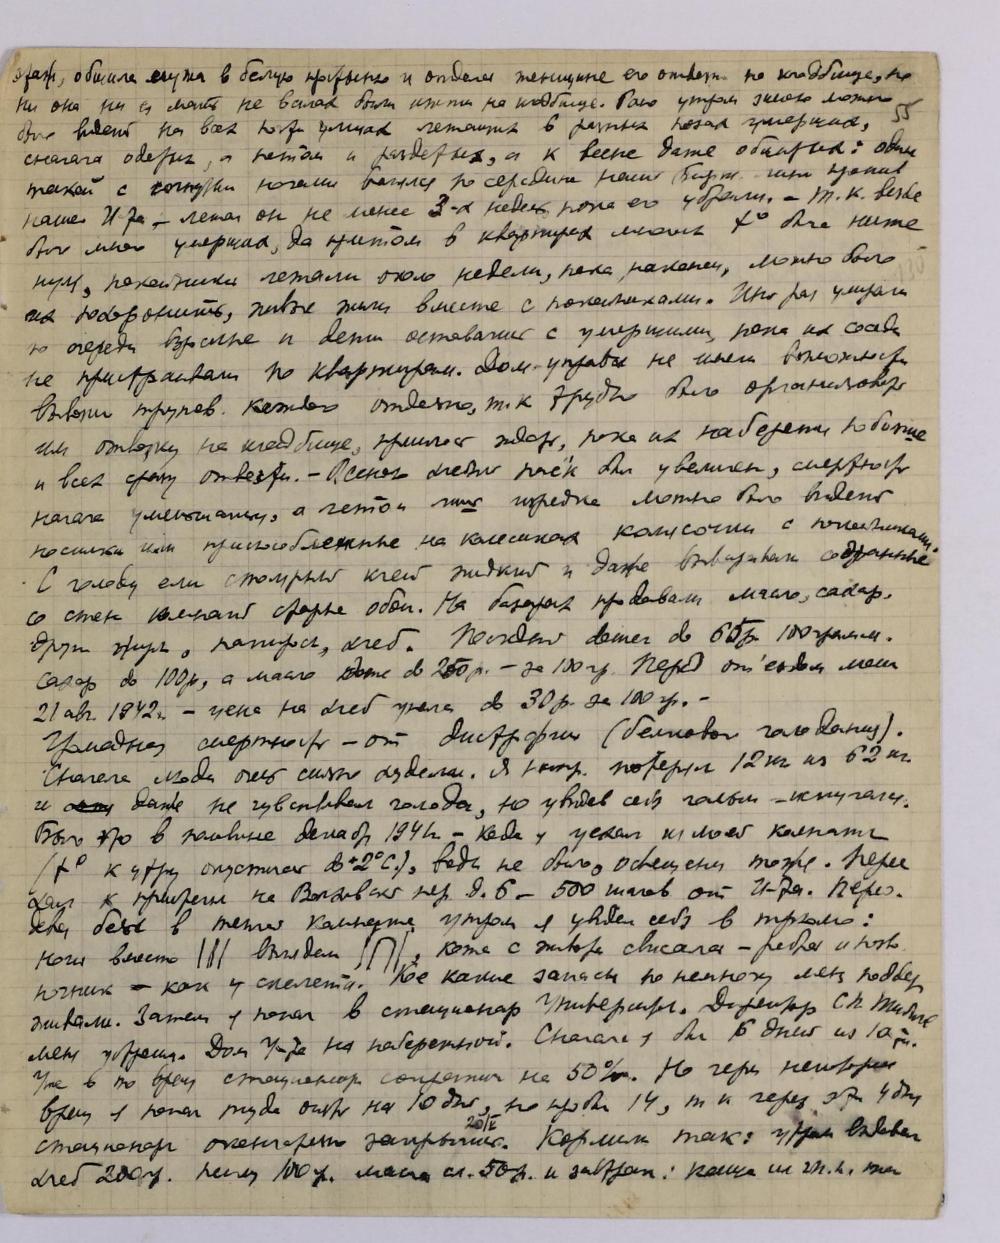 этаж, обшила мужа в белую простыню и отдала женщине его отвезти на кладбище, но
ни она ни её мать не в силах были итти на кладбище. Рано утром зимою можно
55
было видеть на всех почти улицах лежащих в разных позах умерших,
сначала одетых, а потом и раздетых, а к весне даже обшитых: один
такой с согнутыми ногами валялся по середине нашей Бирж. линии против
нашего И-та, – лежал он не менее 3-х недель пока его убрали. – Т.к. везде
было много умерших, да притом в квартирах многих t° была ниже
нуля, покойники лежали около недели, пока наконец, можно было
их похоронить, живые жили вместе с покойниками. Иной раз умирали
по очереди взрослые и дети оставались с умершими, пока их соседи
не пристраивали по квартирам. Дом-управы не имели возможности
вывозить трупов каждого отдельно, т.к. трудно было организовать
им отвозку на кладбище, пришлось ждать, пока их наберется побольше
и всех сразу отвезти. – Осенью хлебный паёк был увеличен, смертность
начала уменьшаться, а летом лишь изредка можно было видеть
носилки или приспособленные на колесиках колясочки с покойниками.
С голоду ели столярный клей жидкий и даже вываривали содранные
со стен комнат старые обои. На базарах продавали масло, сахар,
друг. жиры, папиросы, хлеб. Последний дошел до 65 р. 100 грамм.
сахар до 100 р., а масло даже до 250 р. – за 100 гр. Перед от'ездом моим
21 авг. 1942 г. – цена на хлеб упала до 30 р. за 100 гр. –
Громадная смертность – от дистрофии (белкового голодания).
Сначала люди очень сильно худели. Я напр. потерял 12 кг из 62 кг.
и даже не чувствовал голода, но увидев себя голым – испугался.
Было это в половине декабря 1941 г. – когда я уехал из моей комнаты
(t° к утру опускалась до +2°С), воды не было, освещения тоже. Перее
хал к приятелю на Волховский пер. д. 6 – 500 шагов от И-та. Перео-
девая белье в теплой комнате утром я увидел себя в трюмо:
ноги вместо выглядели , кожа с живота свисала – ребра и позво-
ночник – как у скелета. Кое какие запасы понемногу меня поддер-
живали. Затем я попал в стационар Университ. Директор
меня устроил. Дом У-та на набережной. Сначала я был 6 дней из 10-ти.
Уже в то время стационар сократили на 50%. Но через некоторое
время я попал туда опять на 10 дней, но пробыл 14, т.к. через эти 4 дня
стационар окончательно закрылся. Кормили так: утром выдавал
хлеб 200 гр. 100 гр. масла сл. 50 гр. и завтрак: каша или т.п.